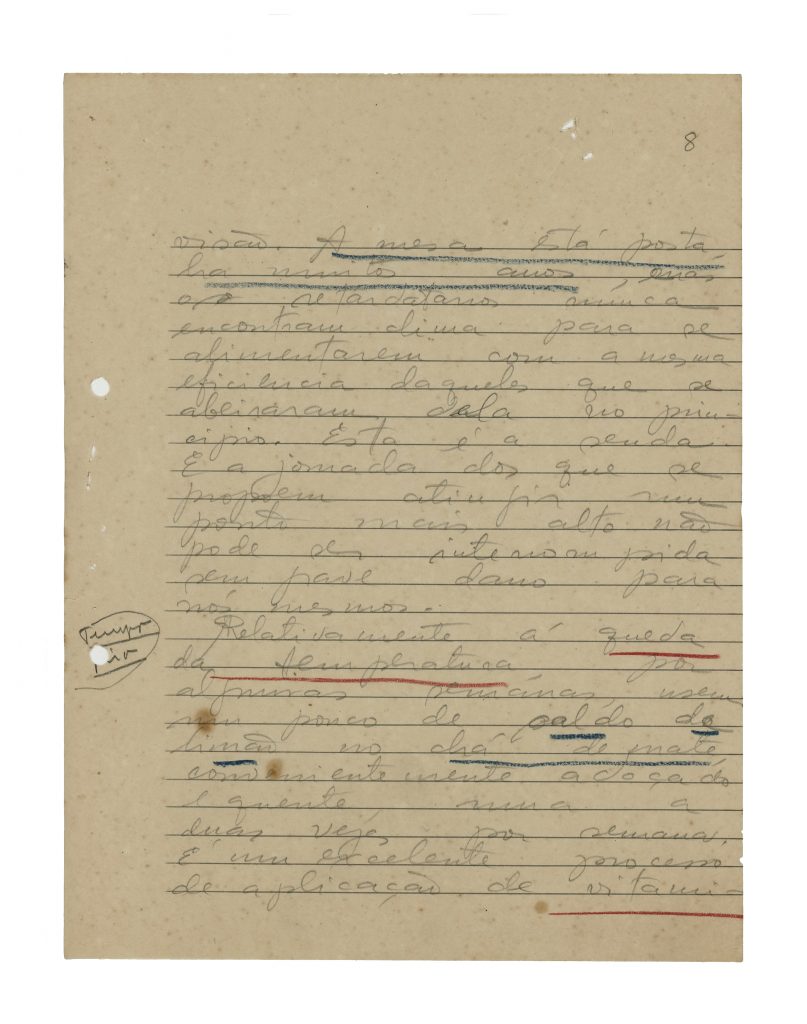 8
visão. A mesa está posta
ha muitos anos, mas
os retardatarios nunca
encontram clima para se
alimentarem com a mesma
eficiencia daqueles que se
abeiraram dela no prin-
cipio. Esta é a senda.
E a jornada dos que se
propoem atingir um
ponto mais alto não
pode ser interrompida
sem grave dano para
nós mesmos.
Tempo
frio
Relativamente á queda
da temperatura por
algumas semanas, usem
um pouco de caldo de
limão no chá de mate
convenientemente adoçado
e quente uma a
duas vezes por semana.
É um excelente processo
de aplicação de vitami-